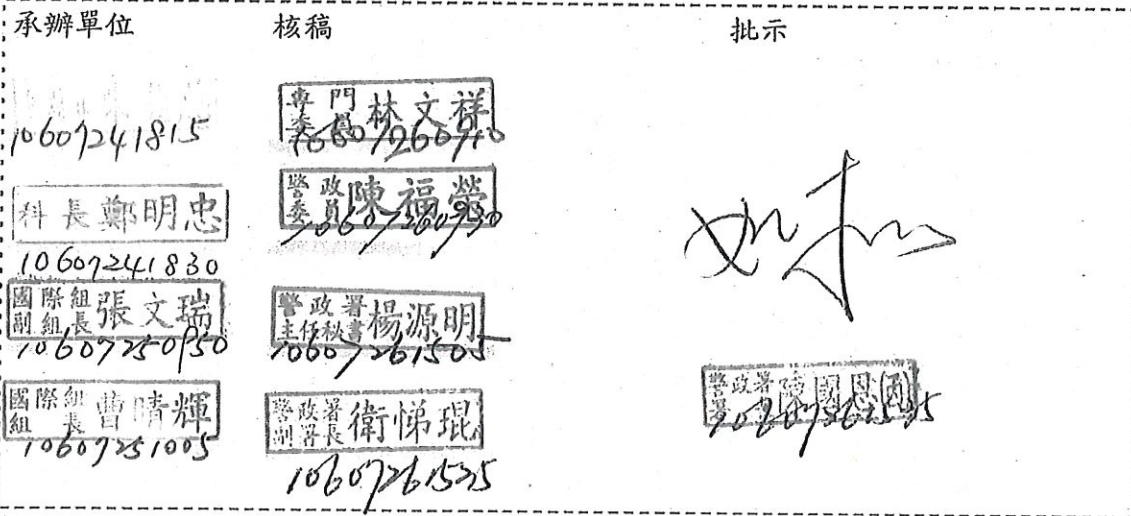 承辦單位
10607241815
科長鄭明忠
10607241830
國際組副組長張文瑞
10607250950
國際組組長曹晴輝
10607251005
核稿
專門委員林文祥
10607260910
警政委員陳福榮
10607260930
警政署主任秘書楊源明
10607261505
警政署副署長衛悌琨
10607261525
批示
如擬
警政署署長陳國恩(丙)